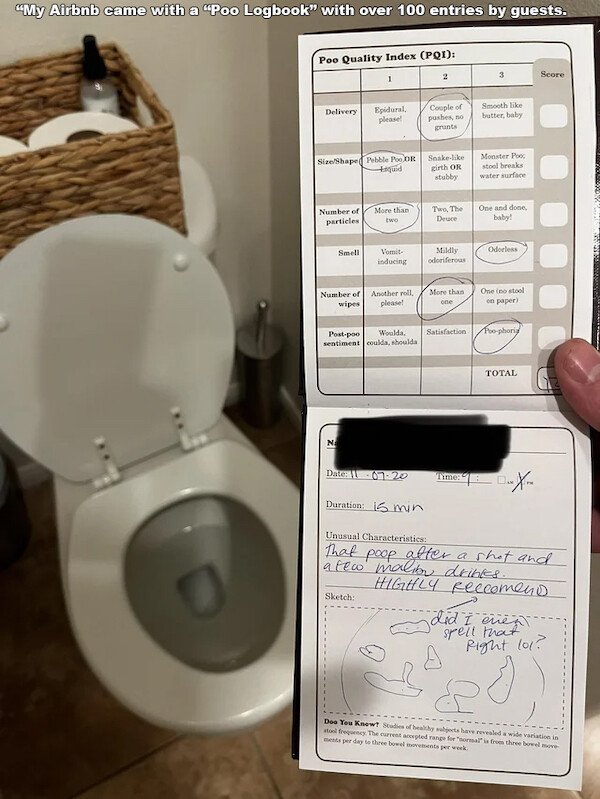 “My Airbnb came with a “Poo Logbook” with over 100 entries by guests.
Poo Quality Index (PQI):
1 2 3 Score
Delivery
Epidural,
please!
Couple of
pushes, no
grunts
Smooth like
butter, baby
Size/Shape
Pebble Poo OR
Liquid
Snake-like
girth OR
stubby
Monster Poo;
stool breaks
water surface
Number of
particles
More than
two
Two, The
Deuce
One and done,
baby!
Smell
Vomit-
inducing
Mildly
odoriferous
Odorless
Number of
wipes
Another roll,
please!
More than
one
One (no stool
on paper)
Post-poo
sentiment
Woulda,
coulda, shoulda
Satisfaction
Poo-phoria
TOTAL
Date: 11-07-20 Time: 9: AM X PM
Duration: 15 min
Unusual Characteristics:
That poop after a shot and
a few malibu drinks.
HIGHLY Reccomend
Sketch:
did I even
spell that
Right lol?
Doo You Know? Studies of healthy subjects have revealed a wide variation in
stool frequency. The current accepted range for "normal" is from three bowel move-
ments per day to three bowel movements per week.